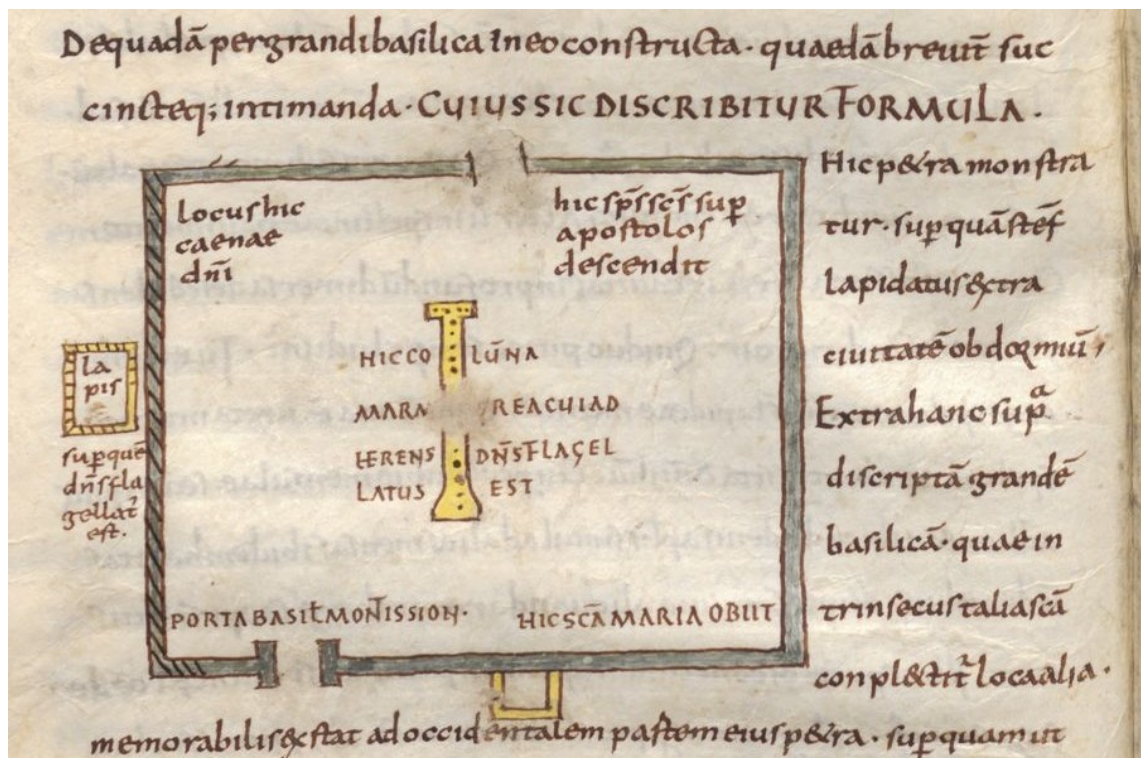 De quadā pergrandi basilica in eo constructa · quaedā breuit̄ suc
cincteq; intimanda · CUIUS SIC DISCRIBITUR FORMULA ·
locus hic
caenae
dn̄i
hic sp̄s sc̄s sup̄
apostolos
descendit
la
pis
sup quē
dn̄s fla
gellat̄
est.
HIC COLŪNA
MARMOREA CUI AD
HERENS DN̄S FLAGEL
LATUS EST
PORTA BASIL̄ MONT̄IS SION·
HIC SCĀ MARIA OBIIT
Hic petra monstra
tur · sup quā stef̄
lapidatus extra
ciuitatē obdormiuī;
Extra hanc sup̄a
discriptā grandē
basilicā · quae in
trinsecus talia scā
conplectit̄ loca alia ·
memorabilis exstat ad occidentalem partem eius petra · super quam ut